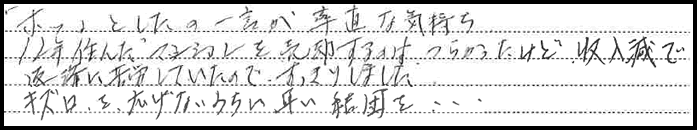 「ホッ」としたの一言が率直な気持ち
12年住んだマンションを売却するのは、つらかったけど、収入減で
返済に苦労していたので、すっきりしました
キズ口を広げないうちに早い結団を・・・